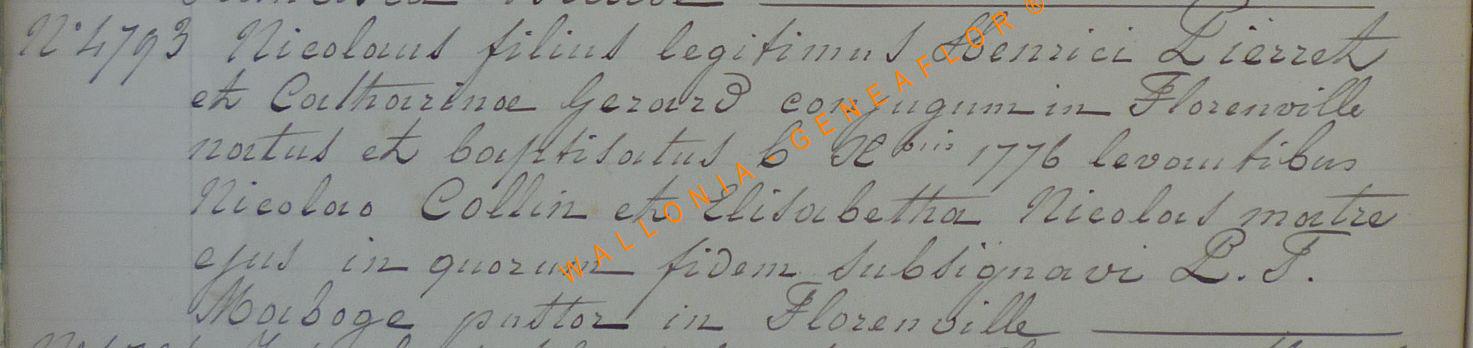 N° 4793 Nicolaus filius legitimus Henrici Pierret
et Catharinæ Gerard conjugum in Florenville
natus et baptisatus 6 Xbris 1776 levantibus
Nicolao Collin et Elisabetha Nicolas matre
ejus in quorum fidem subsignavi P. F.
Maboge pastor in Florenville
WALLONIA - GENEAFLOR ©